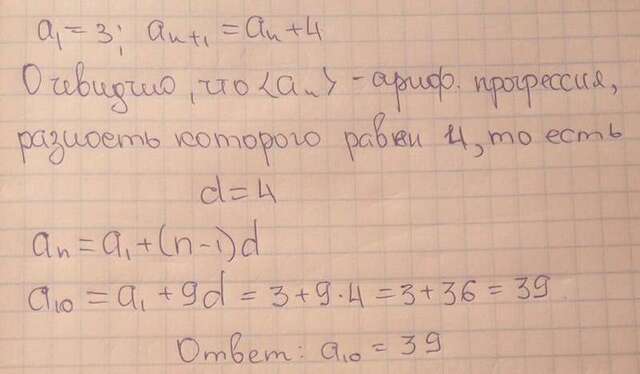 a₁ = 3; aₙ₊₁ = aₙ + 4
Очевидно, что <aₙ> - ариф. прогрессия,
разность которого равен 4, то есть
d = 4
aₙ = a₁ + (n - 1)d
a₁₀ = a₁ + 9d = 3 + 9 · 4 = 3 + 36 = 39
Ответ: a₁₀ = 39